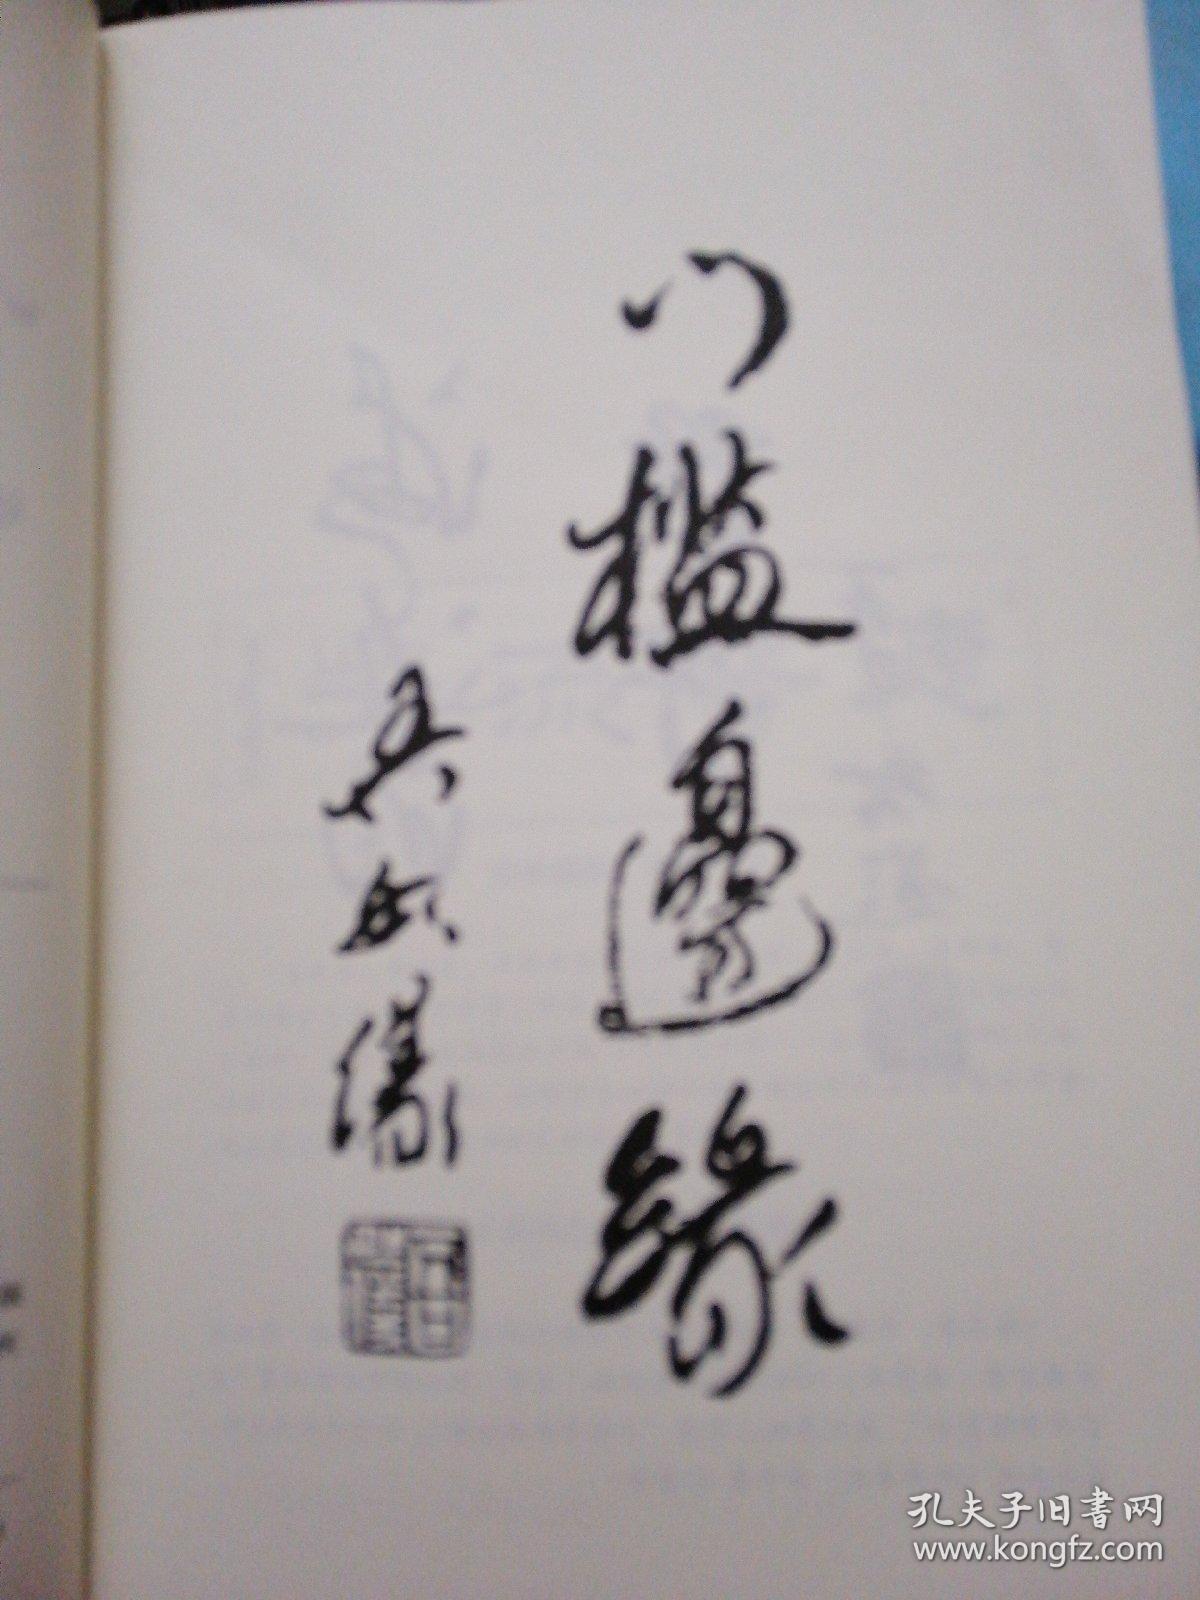 门槛邊緣
吴欢儀
孔夫子旧书网
www.kongfz.com